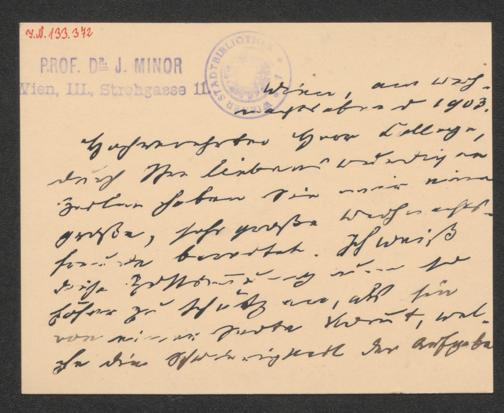 I.N. 133.372
PROF. DR. J. MINOR
Wien, III., Strohgasse 11.
STADTBIBLIOTHEK
WIEN
Wien, am Weih-
nachtsabend 1903.
Hochverehrter Herr College,
durch Ihre liebenswürdigen
Zeilen haben Sie mir eine
große, sehr große Weihnachts-
freude bereitet. Ich weiß
diese Zustimmung um so
höher zu schätzen, als sie
von einer Seite kommt, wel-
che die Schwierigkeit der Aufgabe